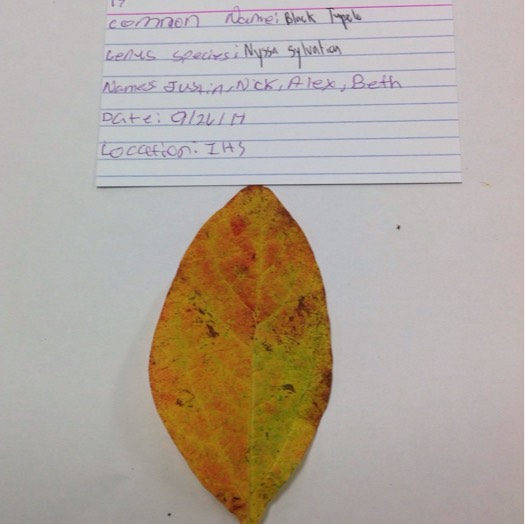 17
Common Name: Black Typelo
Genus species: Nyssa sylvatica
Names Justin, Nick, Alex, Beth
Date: 9/26/14
Location: IHS